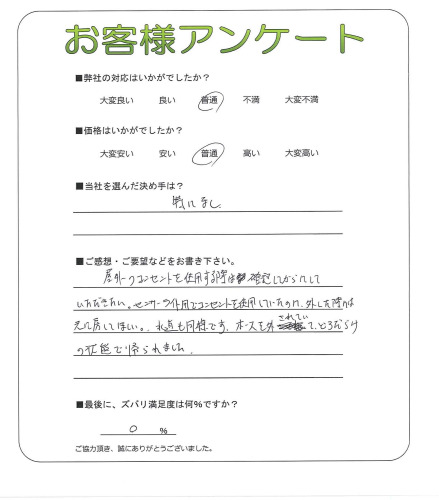 お客様アンケート
■弊社の対応はいかがでしたか？
大変良い 良い 普通 不満 大変不満
■価格はいかがでしたか？
大変安い 安い 普通 高い 大変高い
■当社を選んだ決め手は？
特になし
■ご感想・ご要望などをお書き下さい。
屋外コンセントを使用する際は 確認してからにして
いただきたい。センサーライト用でコンセントを使用していたのに、外した際は
元に戻してほしい。水道も同様です。ホースを外されていて、どろだらけ
の状態で帰られました。
■最後に、ズバリ満足度は何％ですか？
0 ％
ご協力頂き、誠にありがとうございました。